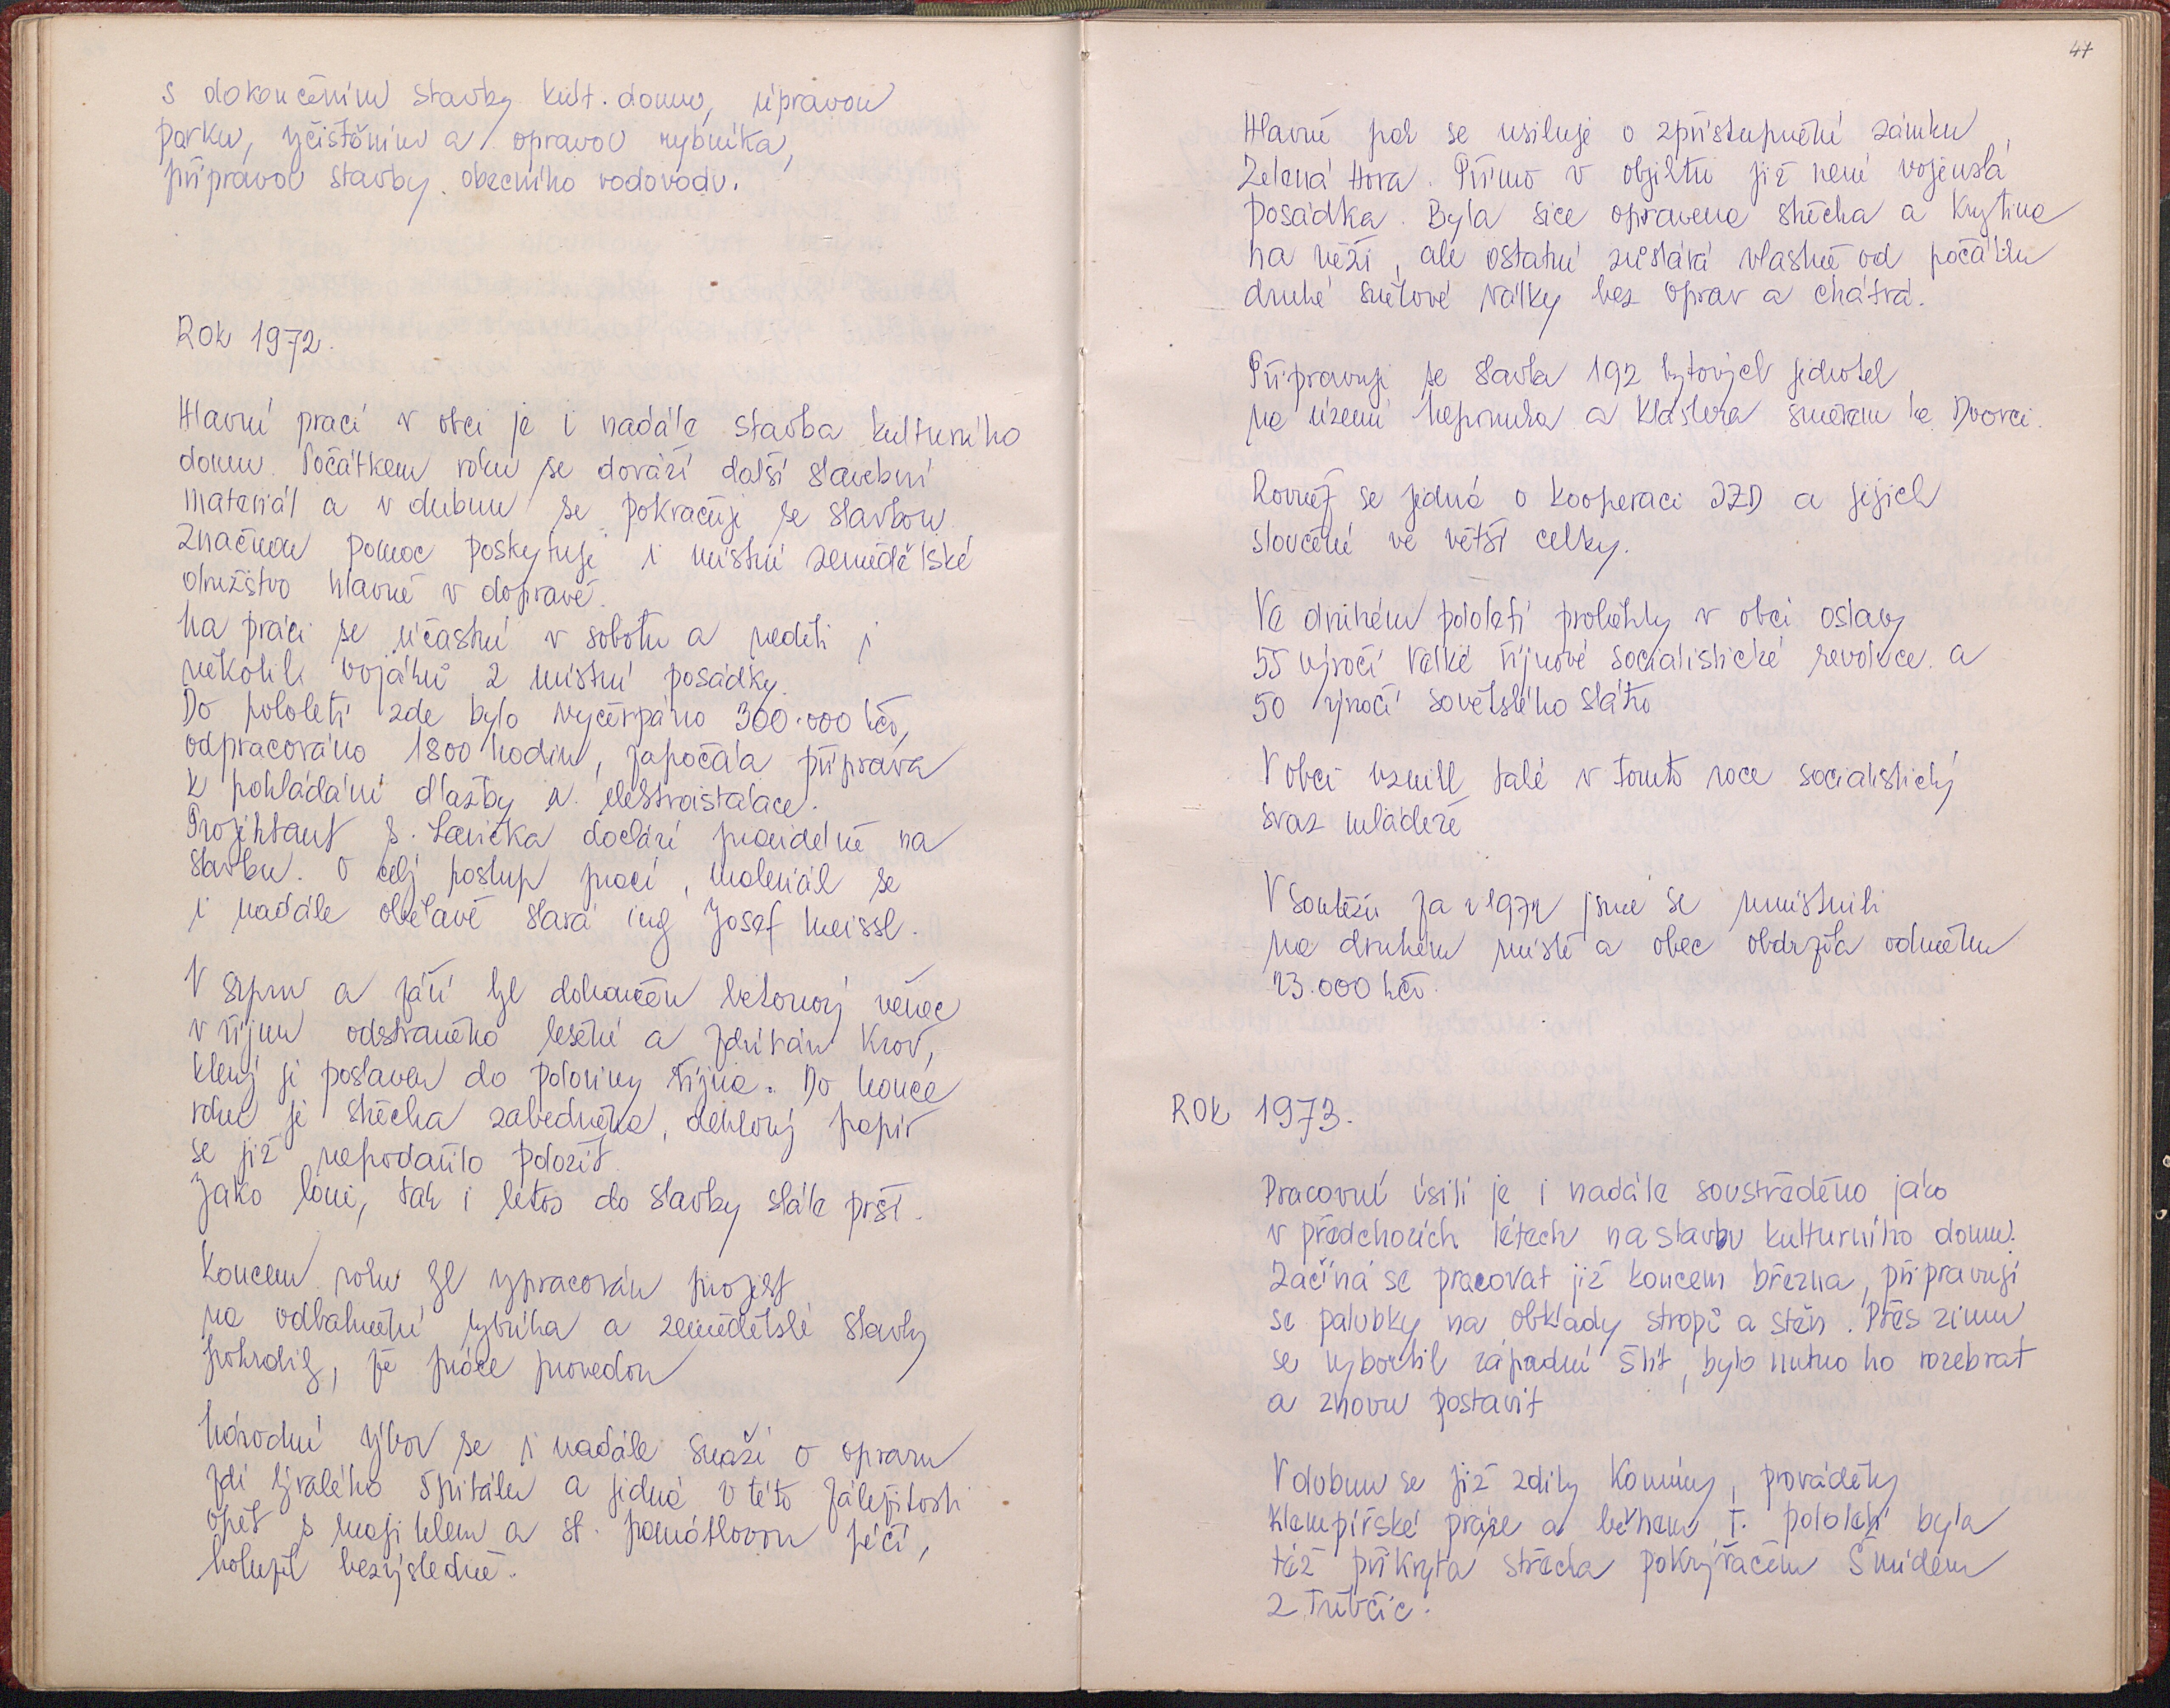 s dokončením stavby kult. domu, úpravou
parku, vyčistěním a opravou rybníka,
přípravou stavby obecního vodovodu.
Rok 1972.
Hlavní prací v obci je i nadále stavba kulturního
domu. Počátkem roku se dováží další stavební
materiál a v dubnu se pokračuje se stavbou
Značnou pomoc poskytuje i místní zemědělské
družstvo hlavně v dopravě.
Na práci se účastní v sobotu a neděli i
několik vojáků z místní posádky.
Do pololetí zde bylo vyčerpáno 300.000 kčs,
odpracováno 1800 hodin, započala příprava
k pokládání dlažby a elektroistalace.
Projektant s. Lavička dochází pravidelně na
stavbu. O celý postup prací, materiál se
i nadále obětavě stará ing Josef Meissl.
V srpnu a září byl dokončen betonový věnec
v říjnu odstraněno lešení a zdvihán krov,
který je postaven do poloviny října. Do konce
roku je střecha zabedněna, dehtový papír
se již nepodařilo položit.
Jako loni, tak i letos do stavby stále prší.
Koncem roku byl vypracován projekt
na odbahnění rybníka a zemědělské stavby
potvrdily, že práce provedou
Národní výbor se i nadále snaží o opravu
zdi bývalého špitálu a jedná v této záležitosti
opět s majitelem a st. památkovou péčí,
bohužel bezvýsledně.
47
Hlavně pak se usiluje o zpřístupnění zámku
Zelená Hora. Přímo v objektu již není vojenská
posádka. Byla sice opravena střecha a krytina
na věži, ale ostatní zůstává vlastně od počátku
druhé světové války bez oprav a chátrá.
Připravuje se stavba 192 bytových jednotek
na území Nepomuka a Kláštera směrem ke Dvorci.
Rovněž se jedná o kooperaci JZD a jejich
sloučení ve větší celky.
Ve druhém pololetí proběhly v obci oslavy
55 výročí Velké říjnové socialistické revoluce a
50 výročí sovětského státu
V obci vznikl také v tomto roce socialistický
svaz mládeže
V soutěži za r 1972 jsme se umístnili
na druhém místě a obec obdržela odměnu
23.000 kčs.
Rok 1973.
Pracovní úsilí je i nadále soustředěno jako
v předchozích létech na stavbu kulturního domu.
Začíná se pracovat již koncem března, připravují
se palubky na obklady stropů a stěn. Přes zimu
se vybortil západní štít, bylo nutno ho rozebrat
a znovu postavit
V dubnu se již zdily komíny, prováděly
klempířské práce a během I. pololetí byla
též přikryta střecha pokrývačem Šmídem
z Třebčic.